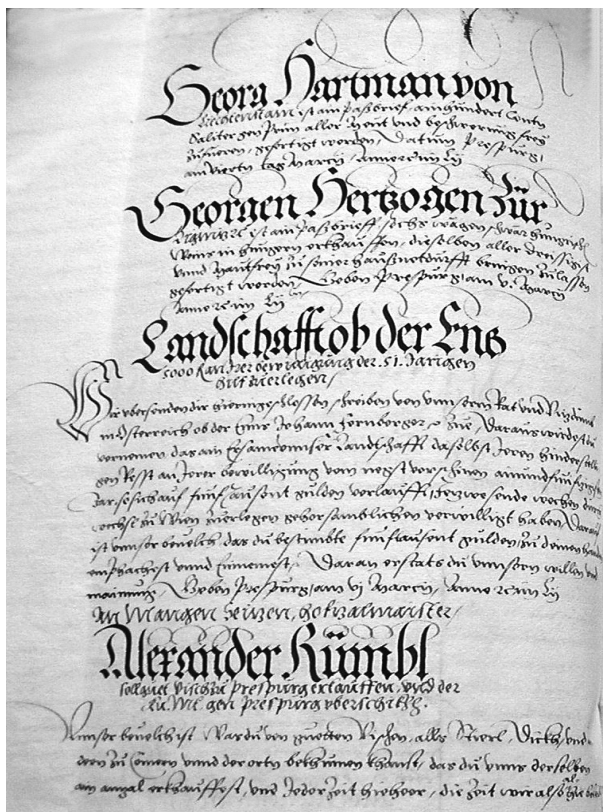 Georg Hartman von
Liechtenstain ist ain paßbrief, ain hundert Centn
Saliter gen Prin aller Meut und beschwerung frey
zufueren, gefertigt worden, Datum Prespurg,
am viertn tag Marcy, Anno rc im Lij
Georgen Hertzogen zür
ist ain paßbrieff, sechs wägen, hungrisch
Wein in Hungern erkhauffen, dieselben aller dreissigist
unnd Mautfrey zu seiner haußnotdurfft bringen zulassen
gefertigt worden, Geben Prespurg, am v. Marcy
Anno rc im Lij
Landschafft ob der Enß
5000 der bewilligung der .51. Jarigen
hilf zuerlegen,
Wir ubersenden dir hieringeschlossen, schreiben von unnserm Rat und
in Osterreich ob der Enns Johann Fernberger, rc zue, Daraus wirdest du
vernemen das ain Ersame unnser Landschafft daselbst Jeren hinderstelligen
Resst an Jerer bewilligung vom negst verschinen ainundfunfzigisten
Jar so sich auf funf tausent gulden verlaufft, wochen durch
wechsl zu Wien zuerlegen gehorsamblichen verwilligt haben, Darauf
ist unnser beuelch das du bestimbte funf tausent gulden, zu deinen handen
emphachest unnd Einnemest, Daran erstatst du unnsern willen und
mainung, Geben Prespurg, am vj Marcy, Anno rc im Lij
An Mangen hofzalmaister,
Alexander Kümbl
soll guet visch zu Prespurg erkauffen, und der
Ku: Mt gen Prespurg uberschickh.
Unnser beuelch ist Was du von guetten Vischen, alls Stierl, Dickh, und
dern zu Comorn unnd der ortn bekhumen khanst, das du unns derselben
ain anzal erkhauffest, und Jeder Zeit hieheer, die Zeit wir also hie